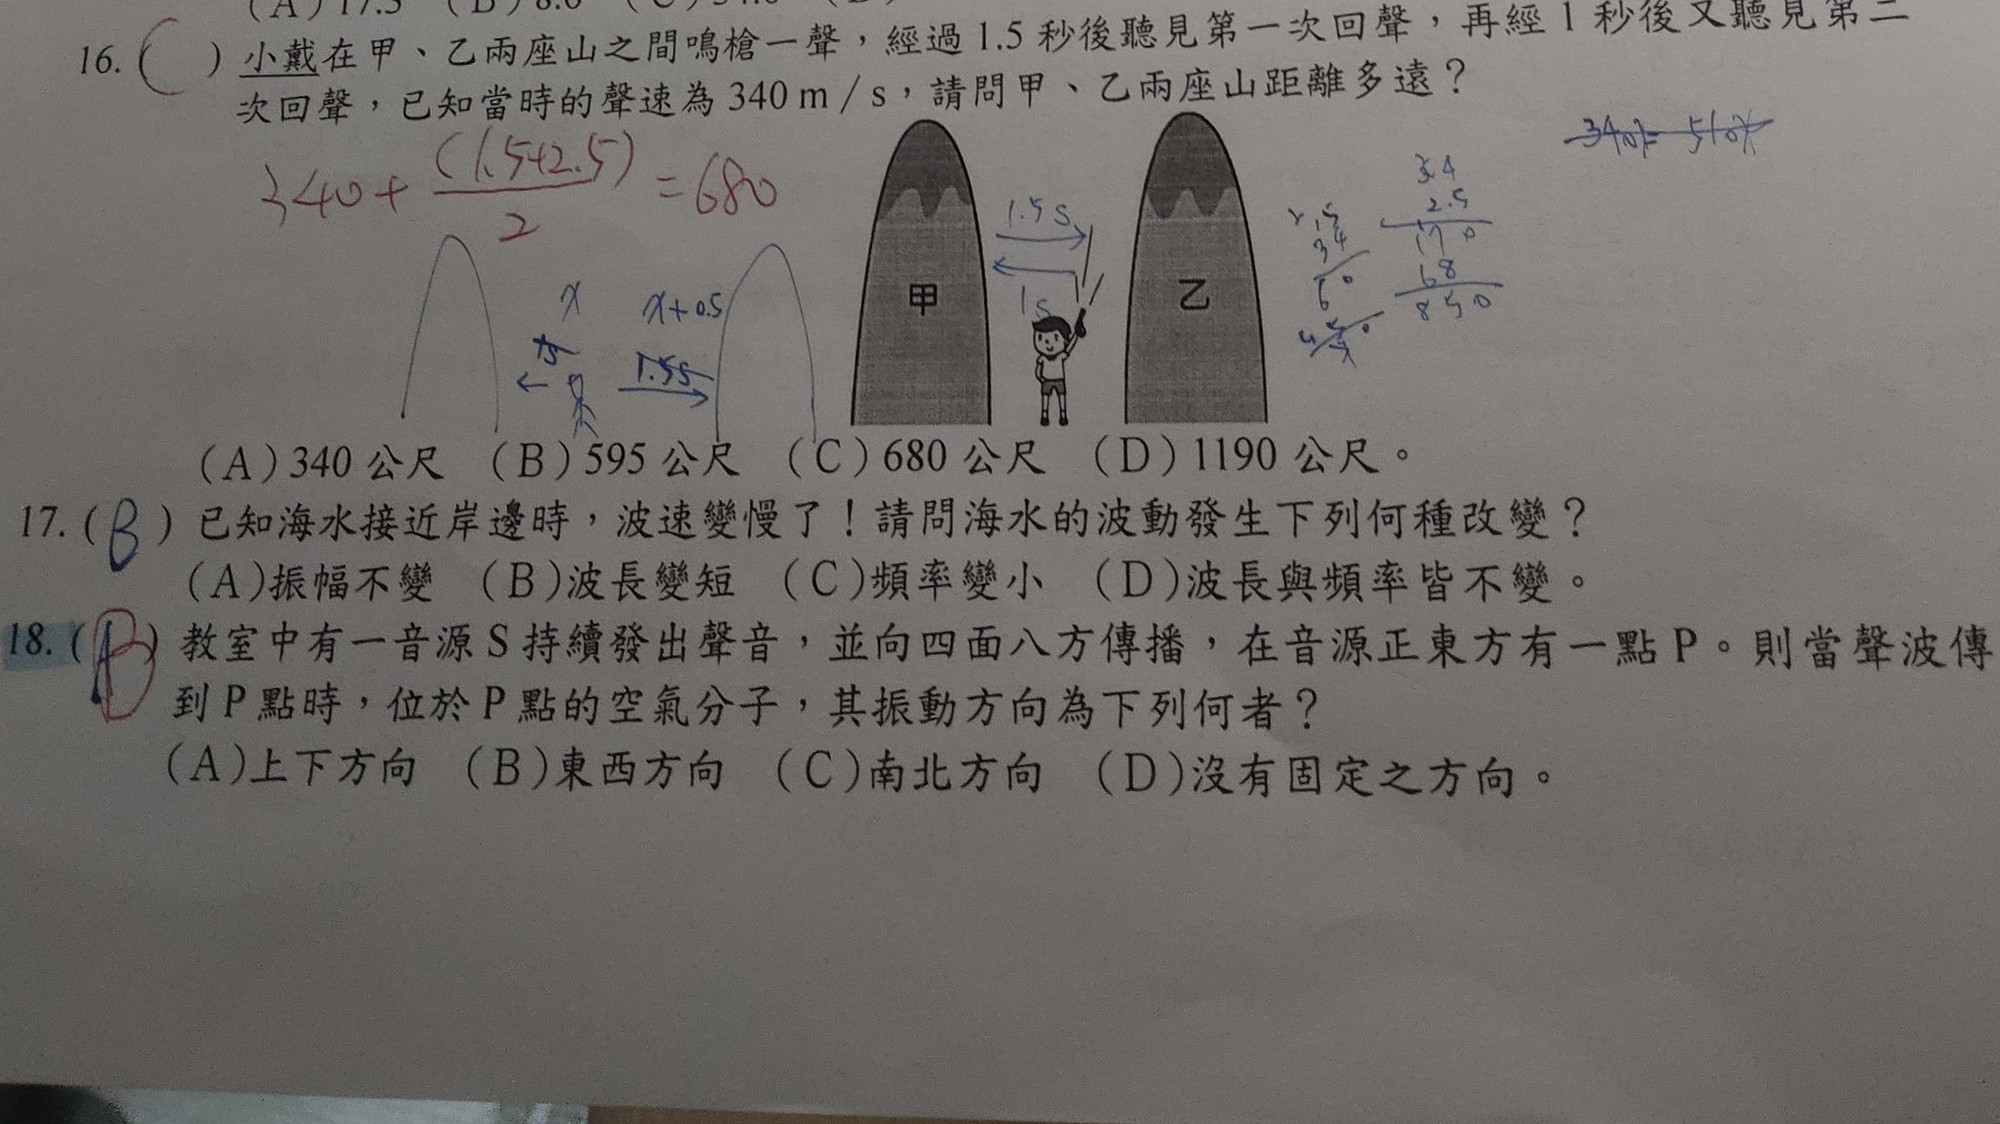 (A)17.5 (B)8.6 (C)34.0
16. (C ) 小戴在甲、乙兩座山之間鳴槍一聲，經過 1.5 秒後聽見第一次回聲，再經 1 秒後又聽見第二
次回聲，已知當時的聲速為 340 m / s，請問甲、乙兩座山距離多遠？
340+ (1.5+2.5) = 680
2
340x = 510x
34
2.5
170
68
850
1.5s
甲
乙
1s
x
x+0.5
1.5s
(A) 340 公尺 (B) 595 公尺 (C) 680 公尺 (D) 1190 公尺。
17. (B) 已知海水接近岸邊時，波速變慢了！請問海水的波動發生下列何種改變？
(A)振幅不變 (B)波長變短 (C)頻率變小 (D)波長與頻率皆不變。
18. (B) 教室中有一音源 S 持續發出聲音，並向四面八方傳播，在音源正東方有一點 P。則當聲波傳
到 P 點時，位於 P 點的空氣分子，其振動方向為下列何者？
(A)上下方向 (B)東西方向 (C)南北方向 (D)沒有固定之方向。